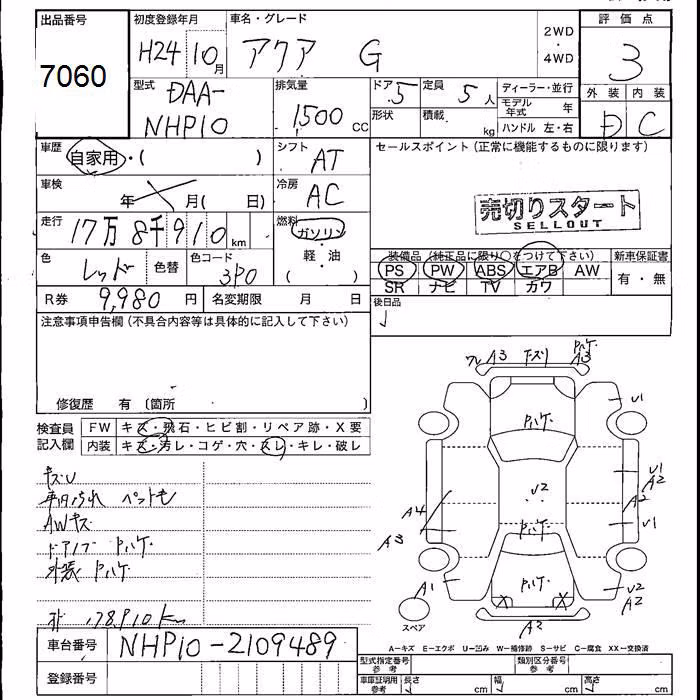 出品番号
7060
初度登録年月
H24 10月
車名・グレード
アクア G
2WD
・
4WD
評価点
3
外装 内装
D C
型式
DAA-
NHP10
排気量
1500 cc
ドア 5
定員 5人
形状
積載 kg
ディーラー・並行
モデル年式 年
ハンドル 左・右
車歴
自家用・( )
シフト
AT
セールスポイント(正常に機能するものに限ります)
車検
年 月( 日)
冷房
AC
売切りスタート
SELLOUT
走行
17万8千910km
燃料
ガソリン
軽・油
( )
色
レッド
色替
色コード
3P0
装備品(純正品に限り○をつけて下さい)
PS PW ABS エアB AW
SR ナビ TV カワ
新車保証書
有・無
R券 9,980 円
名変期限 月 日
後日品
注意事項申告欄(不具合内容等は具体的に記入して下さい)
修復歴 有 〔箇所 〕
検査員
記入欄
FW キズ・飛石・ヒビ割・リペア跡・X要
内装 キズ・汚レ・コゲ・穴・スレ・キレ・破レ
キズU
AWキズ
ドアノブ Pハゲ
外装 Pハゲ
178,910km
ワレ A3 下ズリ Pハゲ A3
U1
Pハゲ
U1
A2
U2
A2
A4
U1
A3
Pハゲ
A1
Pハゲ
U2
A2
X X
A2
スペア
A-キズ E-エクボ U-凹み W-補修跡 S-サビ C-腐食 XX-交換済
車台番号
NHP10-2109489
登録番号
型式指定番号
参考
類別区分番号
参考
車庫証明用
参考
長さ cm
幅 cm
高さ cm